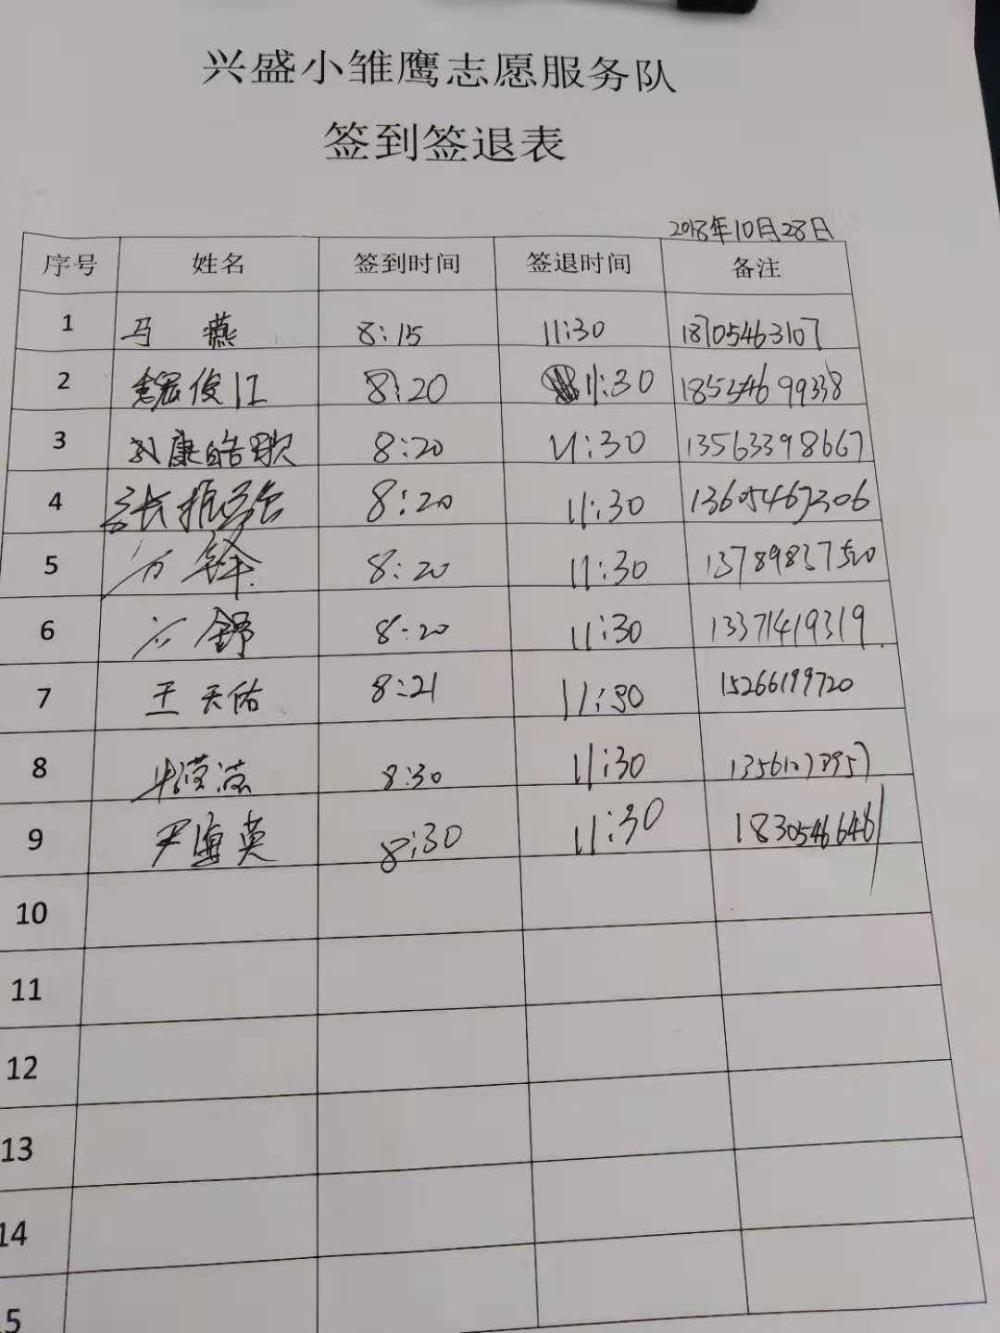 兴盛小雏鹰志愿服务队
签到签退表
2018年10月28日
序号 姓名 签到时间 签退时间 备注
1 马燕 8:15 11:30 18705463107
2 魏俊江 8:20 11:30 185254699338
3 康皓歌 8:20 11:30 13563398667
4 张振强 8:20 11:30 13605467306
5 8:20 11:30 13789837520
6 舒 8:20 11:30 13371419319
7 王天佑 8:21 11:30 15266199720
8 8:30 11:30
9 尹海英 8:30 11:30 18305466461
10
11
12
13
14
15